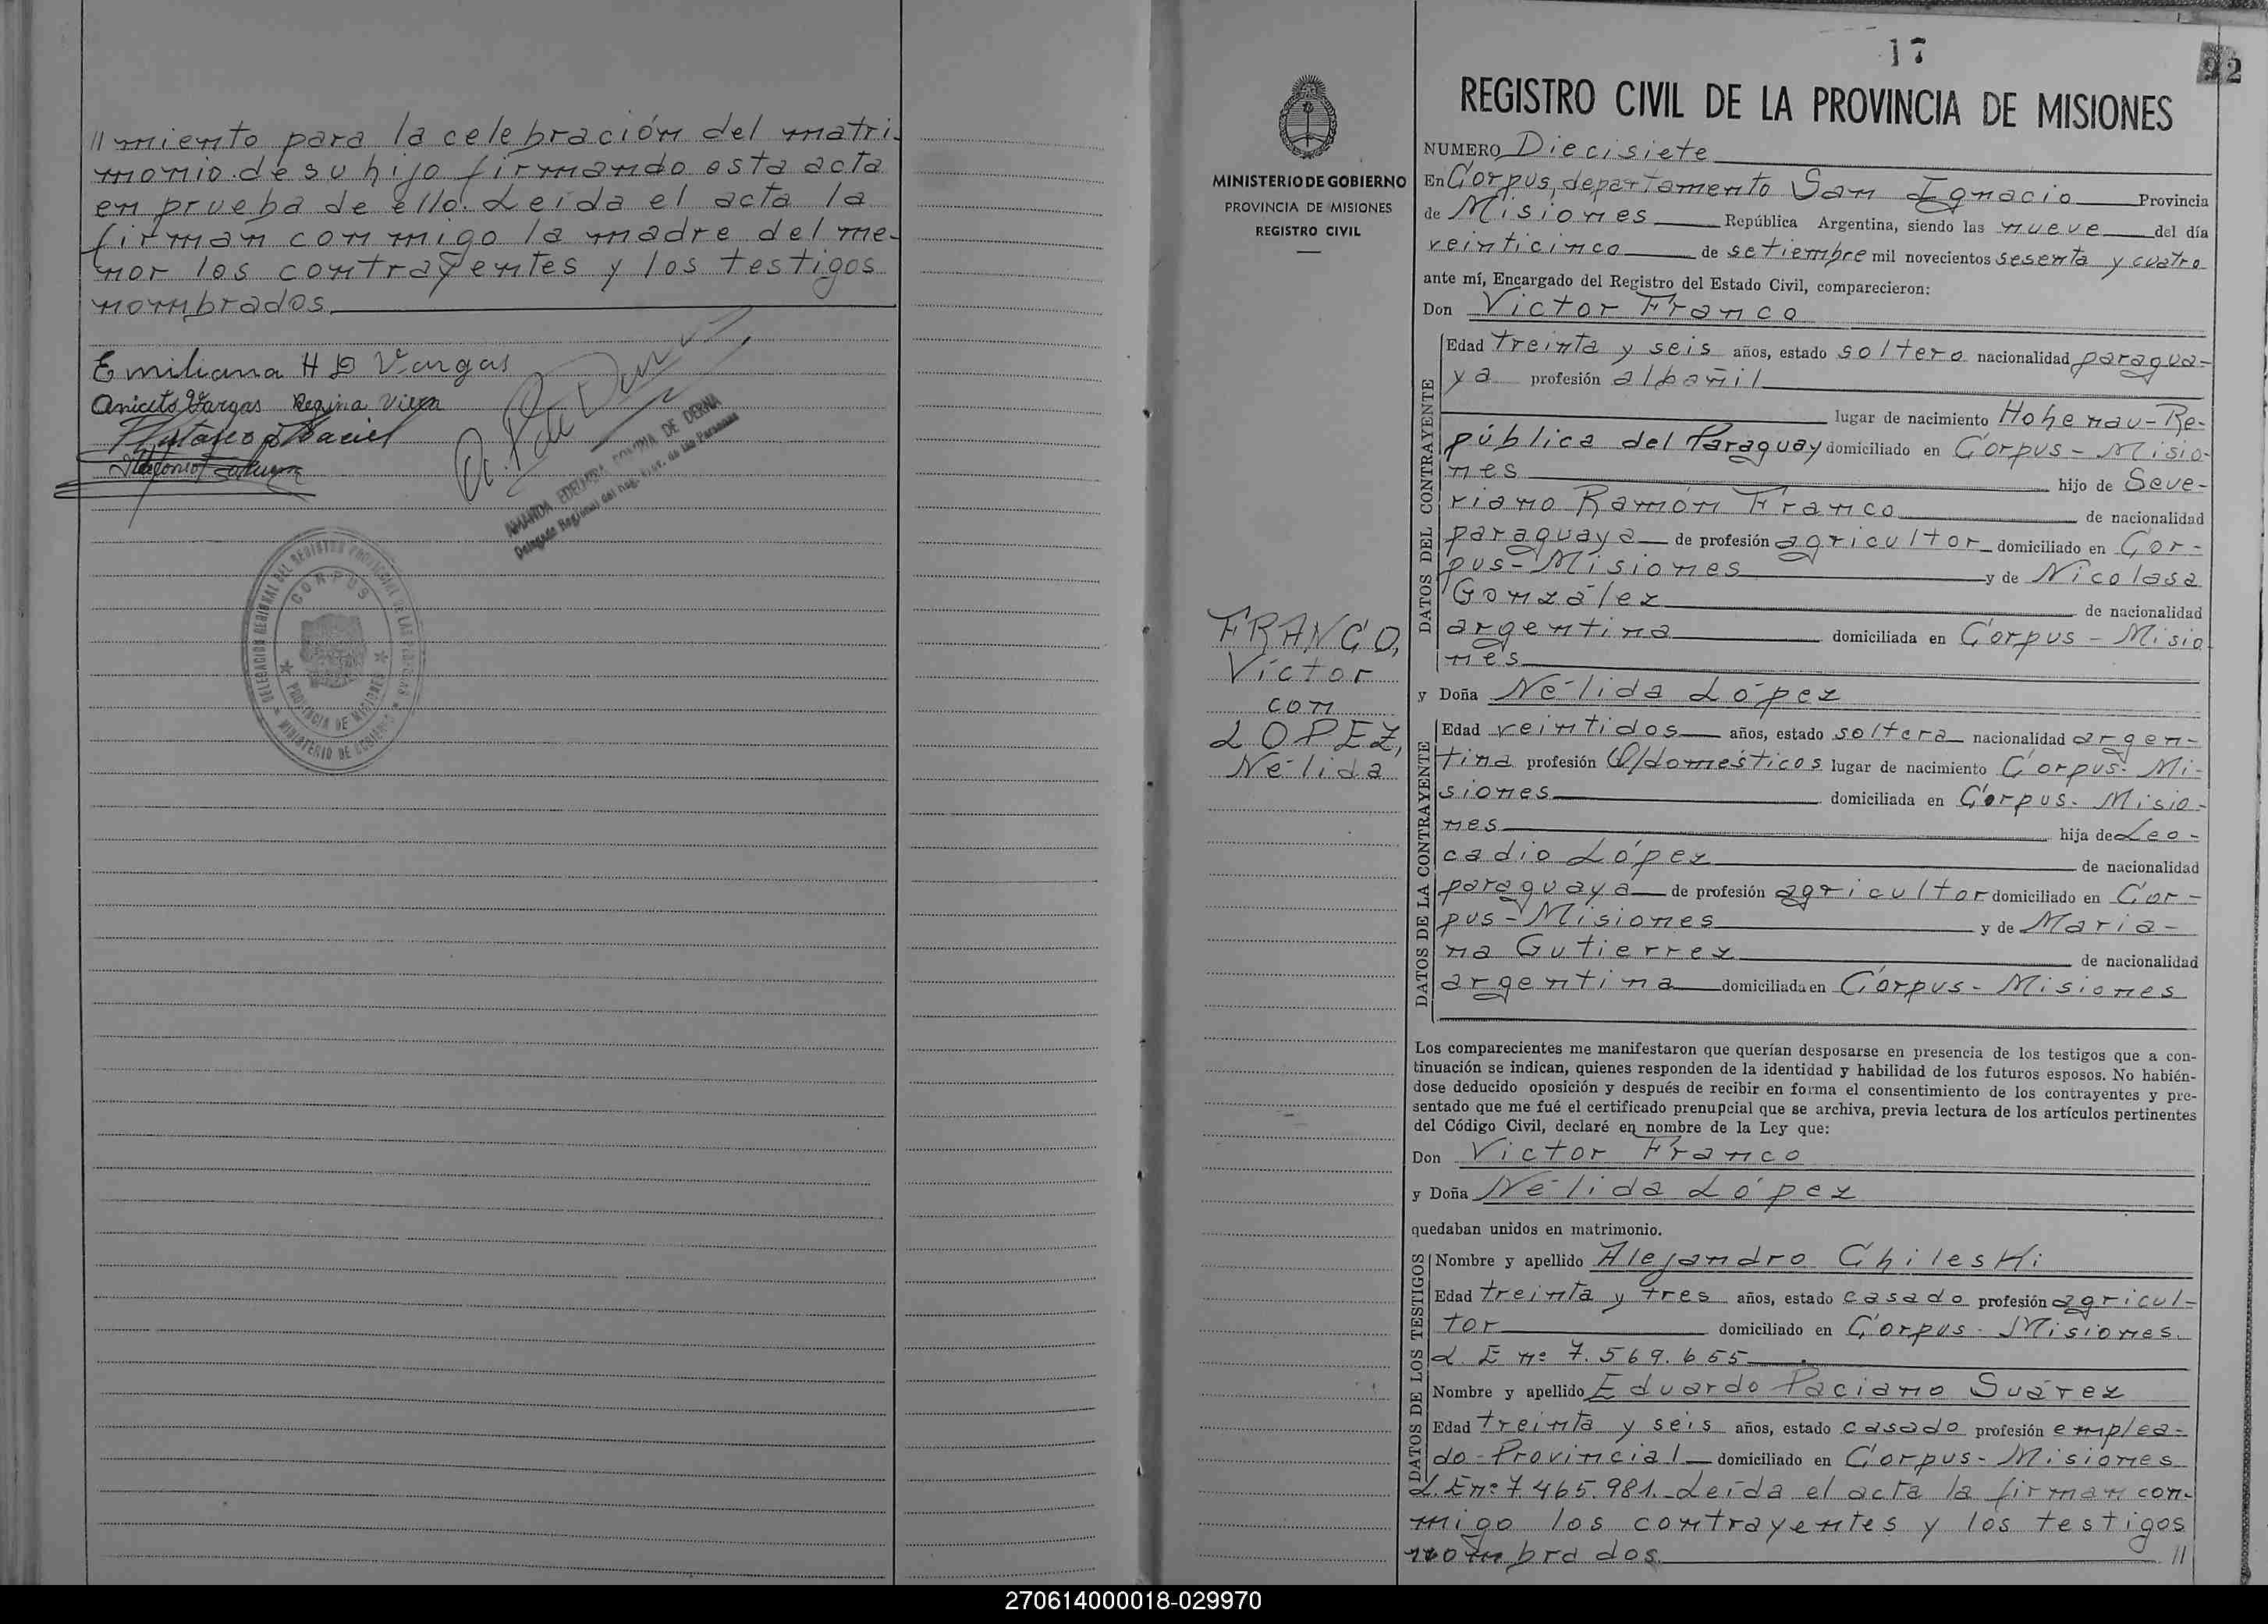 //miento para la celebración del matri-
monio de su hijo firmando esta acta
en prueba de ello. Leída el acta la
firman conmigo la madre del me-
nor los contrayentes y los testigos
nombrados
Emiliana H D Vargas
Aniceto Vargas Regina Viera
AMANDA EDELMIRA DE DERNA
CORPUS
PROVINCIA DE MISIONES
MINISTERIO DE GOBIERNO
17
92
MINISTERIO DE GOBIERNO
PROVINCIA DE MISIONES
REGISTRO CIVIL
FRANCO,
Víctor
con
LOPEZ,
Nélida
REGISTRO CIVIL DE LA PROVINCIA DE MISIONES
NUMERO Diecisiete
En Corpus, departamento San Ignacio Provincia
de Misiones República Argentina, siendo las nueve del día
veinticinco de setiembre mil novecientos sesenta y cuatro
ante mí, Encargado del Registro del Estado Civil, comparecieron:
Don Víctor Franco
DATOS DEL CONTRAYENTE
Edad treinta y seis años, estado soltero nacionalidad paragua-
ya profesión albañil
lugar de nacimiento Hohenau-Re-
pública del Paraguay domiciliado en Corpus-Misio-
nes hijo de Seve-
riano Ramón Franco de nacionalidad
paraguaya de profesión agricultor domiciliado en Cor-
pus-Misiones y de Nicolasa
González de nacionalidad
argentina domiciliada en Corpus-Misio
nes
y Doña Nélida López
DATOS DE LA CONTRAYENTE
Edad veintidos años, estado soltera nacionalidad argen-
tina profesión Q/domésticos lugar de nacimiento Corpus-Mi-
siones domiciliada en Corpus-Misio-
nes hija de Leo-
cadio López de nacionalidad
paraguaya de profesión agricultor domiciliado en Cor-
pus-Misiones y de Maria-
na Gutierrez de nacionalidad
argentina domiciliada en Corpus-Misiones
Los comparecientes me manifestaron que querían desposarse en presencia de los testigos que a con-
tinuación se indican, quienes responden de la identidad y habilidad de los futuros esposos. No habién-
dose deducido oposición y después de recibir en forma el consentimiento de los contrayentes y pre-
sentado que me fué el certificado prenupcial que se archiva, previa lectura de los artículos pertinentes
del Código Civil, declaré en nombre de la Ley que:
Don Víctor Franco
y Doña Nélida López
quedaban unidos en matrimonio.
DATOS DE LOS TESTIGOS
Nombre y apellido Alejandro Chileski
Edad treinta y tres años, estado casado profesión agricul-
tor domiciliado en Corpus-Misiones.
L E nº 7.569.655
Nombre y apellido Eduardo Paciano Suárez
Edad treinta y seis años, estado casado profesión emplea-
do-Provincial domiciliado en Corpus-Misiones
L.E nº 7.465.981. Leída el acta la firman con-
migo los contrayentes y los testigos
nombrados //
270614000018-029970